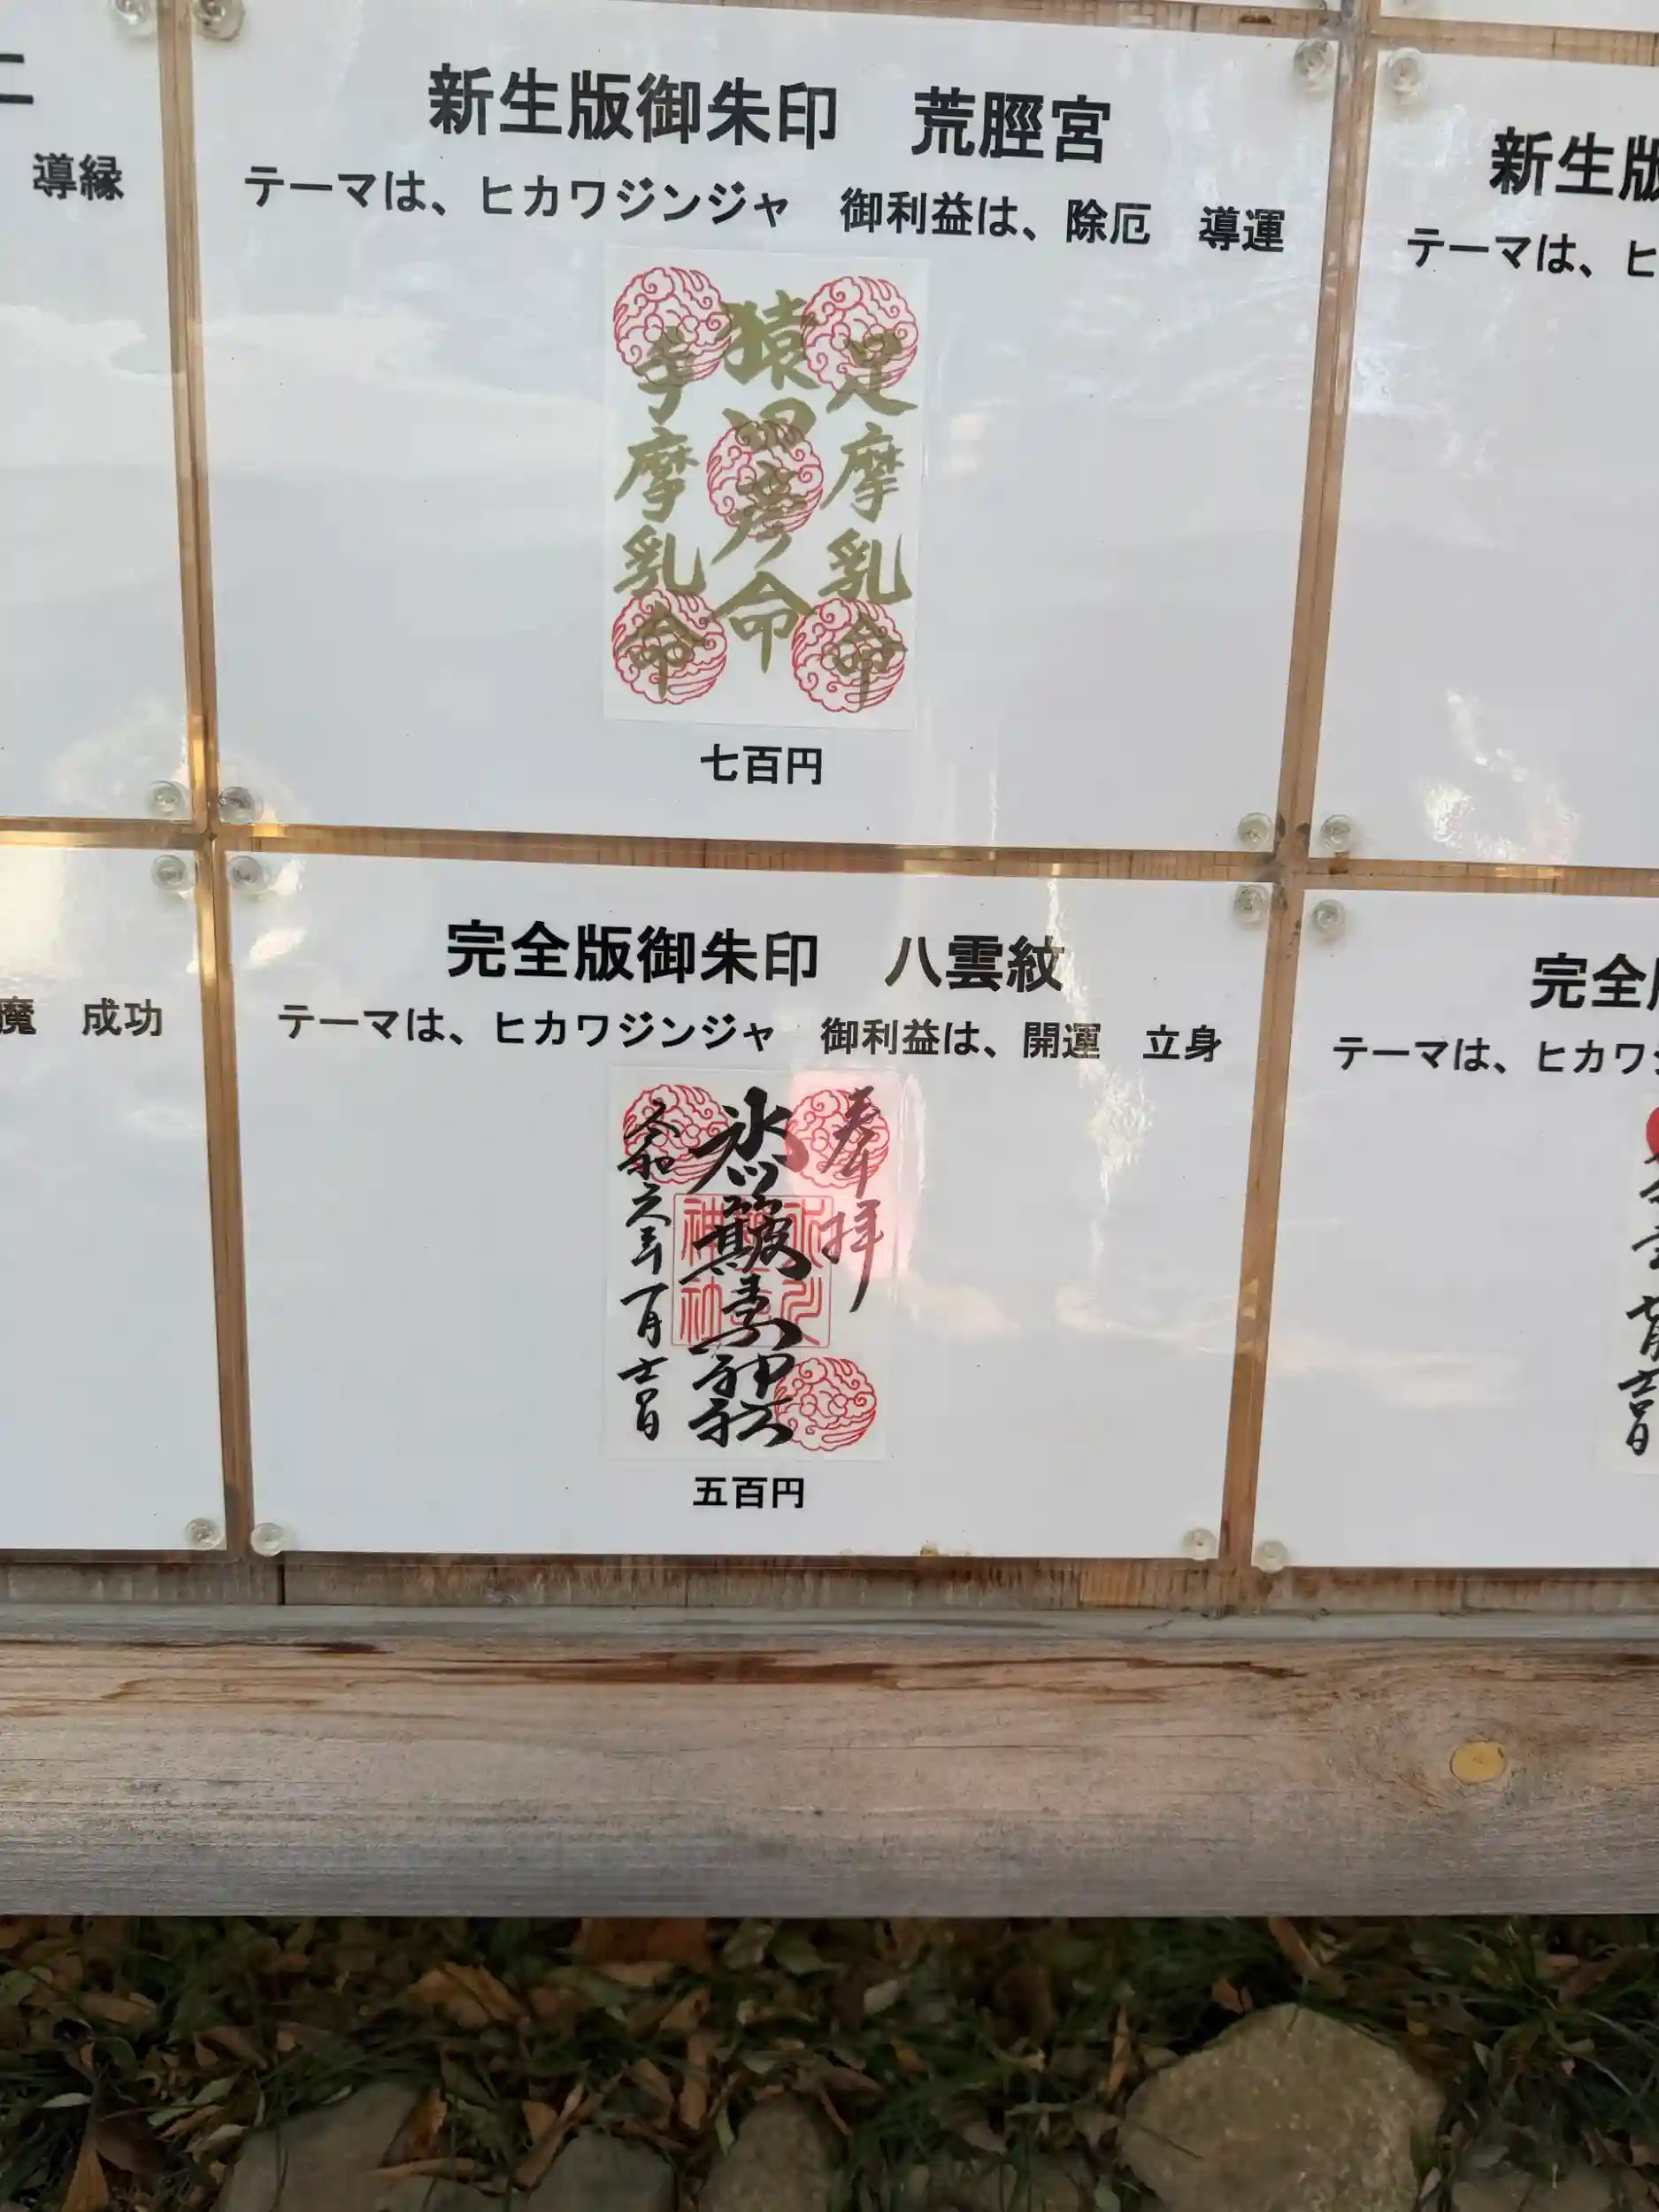 二
導縁
新生版御朱印　荒脛宮
テーマは、ヒカワジンジャ　御利益は、除厄　導運
足摩乳命
猿田彦命
手摩乳命
七百円
新生版
テーマは、ヒ
魔　成功
完全版御朱印　八雲紋
テーマは、ヒカワジンジャ　御利益は、開運　立身
奉拝
氷川簸王子神社
令和六年一月吉日
五百円
完全
テーマは、ヒカワジ